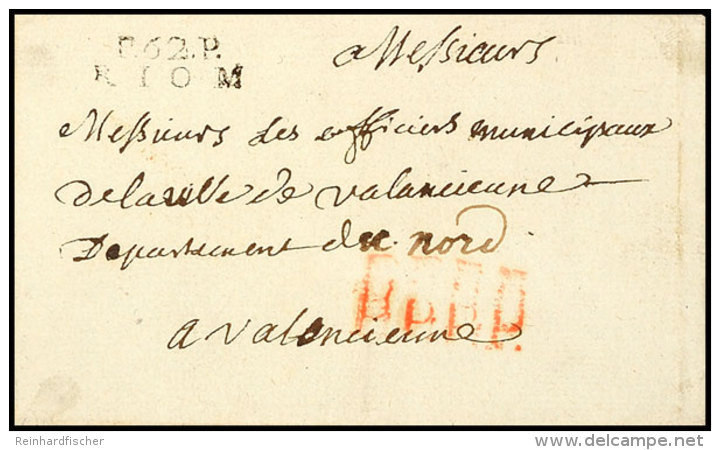 P.62.P.
RIOM
a Messieurs
Messieurs des officiers municipaux
de la ville de valancienne
Departement du nord
a valencienne
Reinhardfischer
delcampe.net